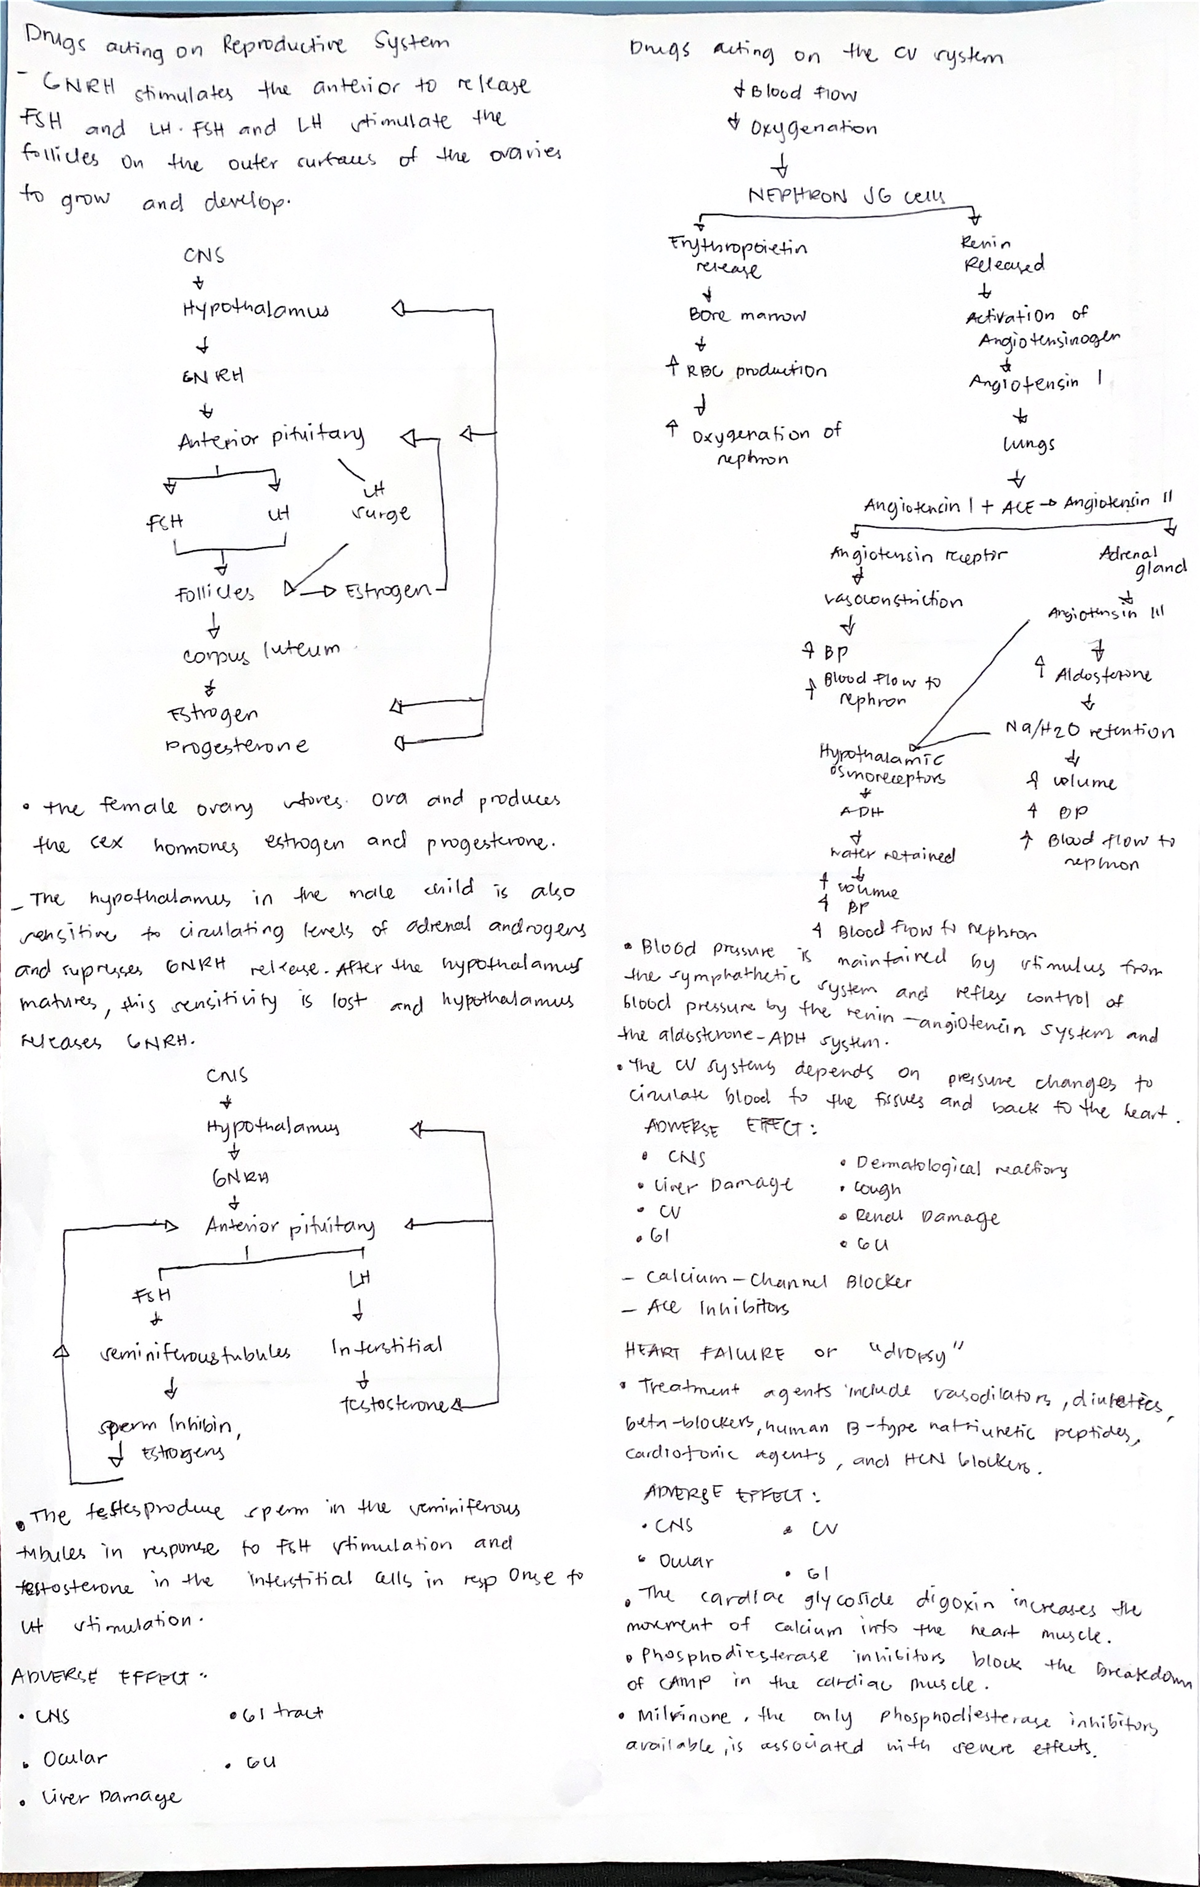 Drugs acting on Reproductive System
- GNRH stimulates the anterior to release
FSH and LH. FSH and LH stimulate the
follicles on the outer surfaces of the ovaries
to grow and develop.
CNS
Hypothalamus
GNRH
Anterior pituitary
FSH LH LH surge
Follicles Estrogen
corpus luteum
Estrogen
Progesterone
• The female ovary stores ova and produces
the sex hormones estrogen and progesterone.
- The hypothalamus in the male child is also
sensitive to circulating levels of adrenal androgens
and supresses GNRH release. After the hypothalamus
matures, this sensitivity is lost and hypothalamus
releases GNRH.
CNS
Hypothalamus
GNRH
Anterior pituitary
FSH LH
seminiferous tubules Interstitial
sperm Inhibin, testosterone
Estrogens
• The testes produce sperm in the seminiferous
tubules in response to FSH stimulation and
testosterone in the interstitial cells in response to
LH stimulation.
ADVERSE EFFECT:
• CNS • GI tract
• Ocular • GU
• Liver Damage
Drugs acting on the CV system
↓ Blood flow
↓ Oxygenation
↓
NEPHRON JG cells
Erythropoietin Renin
release Released
↓ ↓
Bone marrow Activation of
↓ Angiotensinogen
↑ RBC production ↓
↓ Angiotensin I
↑ Oxygenation of ↓
nephron Lungs
↓
Angiotensin I + ACE → Angiotensin II
Angiotensin receptor Adrenal
↓ gland
vasoconstriction ↓
↓ Angiotensin III
↑ BP ↓
↑ Blood flow to ↑ Aldosterone
nephron ↓
Na/H2O retention
Hypothalamic ↓
osmoreceptors ↑ volume
↓
ADH ↑ BP
↓ ↑ Blood flow to
water retained nephron
↓
↑ volume
↑ BP
↑ Blood flow to nephron
• Blood pressure is maintained by stimulus from
the symphathetic system and reflex control of
blood pressure by the renin-angiotensin system and
the aldosterone-ADH system.
• The CV systems depends on pressure changes to
circulate blood to the tissues and back to the heart.
ADVERSE EFFECT:
• CNS • Dermatological reactions
• Liver Damage • Cough
• CV • Renal Damage
• GI • GU
- Calcium-Channel Blocker
- Ace Inhibitors
HEART FAILURE or "dropsy"
• Treatment agents include vasodilators, diuretics,
beta-blockers, human B-type natriuretic peptides,
cardiotonic agents, and HCN blockers.
ADVERSE EFFECT:
• CNS • CV
• Ocular • GI
• The cardiac glycoside digoxin increases the
movement of calcium into the heart muscle.
• Phosphodiesterase inhibitors block the breakdown
of cAMP in the cardiac muscle.
• Milrinone, the only phosphodiesterase inhibitors
available, is associated with severe effects.